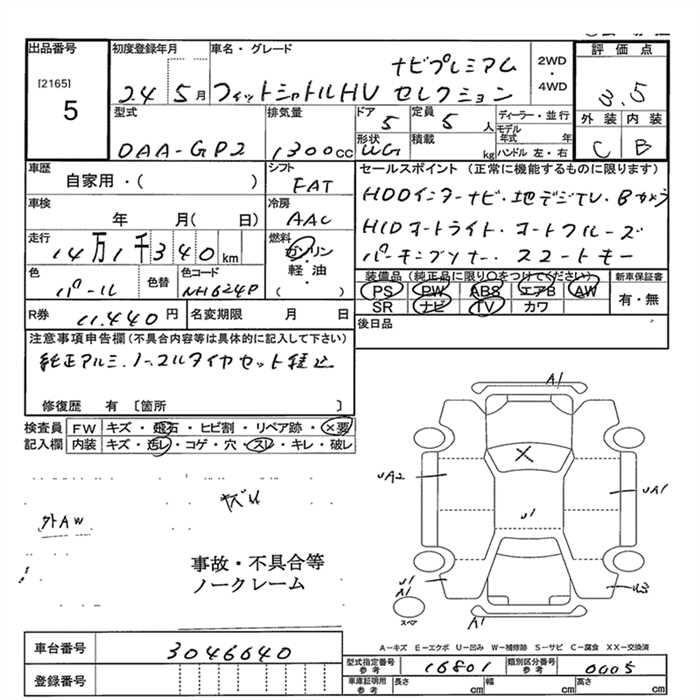 出品番号
[2165]
5
初度登録年月 車名・グレード
24 5月 フィットシャトルHV ナビプレミアム セレクション
2WD・4WD
評価点
3.5
外装 内装
C B
型式 排気量 ドア 定員 ディーラー・並行
DAA-GP2 1300cc 5 5人
モデル年式 年
形状 積載 ハンドル 左・右
WG kg
車歴 シフト セールスポイント (正常に機能するものに限ります)
自家用・( ) FAT
HDDインターナビ・地デジTV・Bカメラ
車検 冷房
年 月( 日) AAC
HIDオートライト・オートクルーズ
走行 燃料
14万1千340km ガソリン・軽油・( )
色 色替 色コード
パール NH624P
装備品 (純正品に限り○をつけてください) 新車保証書
PS PW ABS エアB AW 有・無
SR ナビ TV カワ
R券 11.440円 名変期限 月 日
後日品
注意事項申告欄(不具合内容等は具体的に記入して下さい)
純正アルミ、ノーマルタイヤセット積込
修復歴 有 〔箇所 〕
検査員 FW キズ・飛石・ヒビ割・リペア跡・×要
記入欄 内装 キズ・汚レ・コゲ・穴・スレ・キレ・破レ
外AW ヤブレ
事故・不具合等
ノークレーム
A1
×
UA2 U1 UA1
U1
A1
スペア A1
A－キズ E－エクボ U－凹み W－補修跡 S－サビ C－腐食 XX－交換済
車台番号 3046640
登録番号
型式指定番号 参考 16801 類別区分番号 参考 0005
車庫証明用 参考 長さ cm 幅 cm 高さ cm